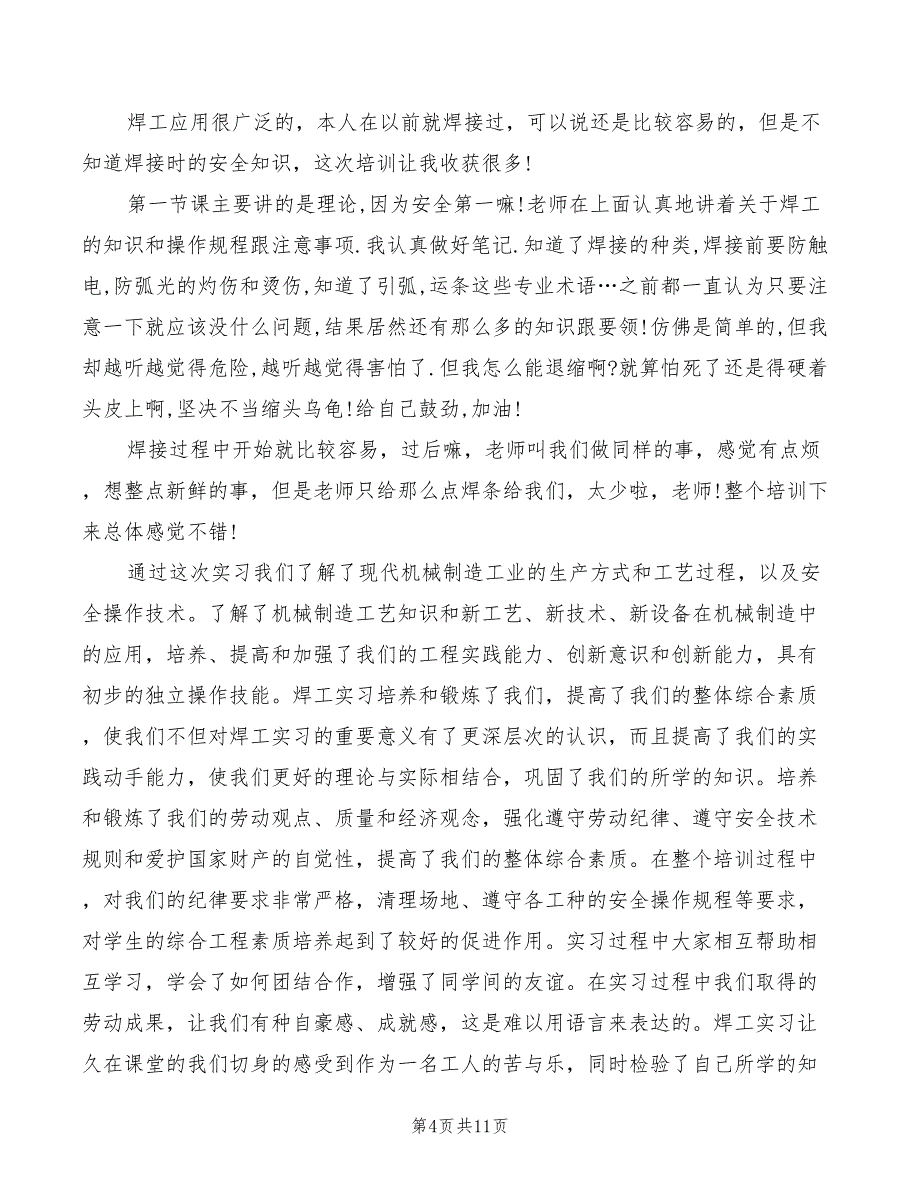 焊工应用很广泛的，本人在以前就焊接过，可以说还是比较容易的，但是不
知道焊接时的安全知识，这次培训让我收获很多!
第一节课主要讲的是理论,因为安全第一嘛!老师在上面认真地讲着关于焊工
的知识和操作规程跟注意事项.我认真做好笔记.知道了焊接的种类,焊接前要防触
电,防弧光的灼伤和烫伤,知道了引弧,运条这些专业术语…之前都一直认为只要注
意一下就应该没什么问题,结果居然还有那么多的知识跟要领!仿佛是简单的,但我
却越听越觉得危险,越听越觉得害怕了.但我怎么能退缩啊?就算怕死了还是得硬着
头皮上啊,坚决不当缩头乌龟!给自己鼓劲,加油!
焊接过程中开始就比较容易，过后嘛，老师叫我们做同样的事，感觉有点烦
，想整点新鲜的事，但是老师只给那么点焊条给我们，太少啦，老师!整个培训下
来总体感觉不错!
通过这次实习我们了解了现代机械制造工业的生产方式和工艺过程，以及安
全操作技术。了解了机械制造工艺知识和新工艺、新技术、新设备在机械制造中
的应用，培养、提高和加强了我们的工程实践能力、创新意识和创新能力，具有
初步的独立操作技能。焊工实习培养和锻炼了我们，提高了我们的整体综合素质
，使我们不但对焊工实习的重要意义有了更深层次的认识，而且提高了我们的实
践动手能力，使我们更好的理论与实际相结合，巩固了我们的所学的知识。培养
和锻炼了我们的劳动观点、质量和经济观念，强化遵守劳动纪律、遵守安全技术
规则和爱护国家财产的自觉性，提高了我们的整体综合素质。在整个培训过程中
，对我们的纪律要求非常严格，清理场地、遵守各工种的安全操作规程等要求，
对学生的综合工程素质培养起到了较好的促进作用。实习过程中大家相互帮助相
互学习，学会了如何团结合作，增强了同学间的友谊。在实习过程中我们取得的
劳动成果，让我们有种自豪感、成就感，这是难以用语言来表达的。焊工实习让
久在课堂的我们切身的感受到作为一名工人的苦与乐，同时检验了自己所学的知
第4页共11页